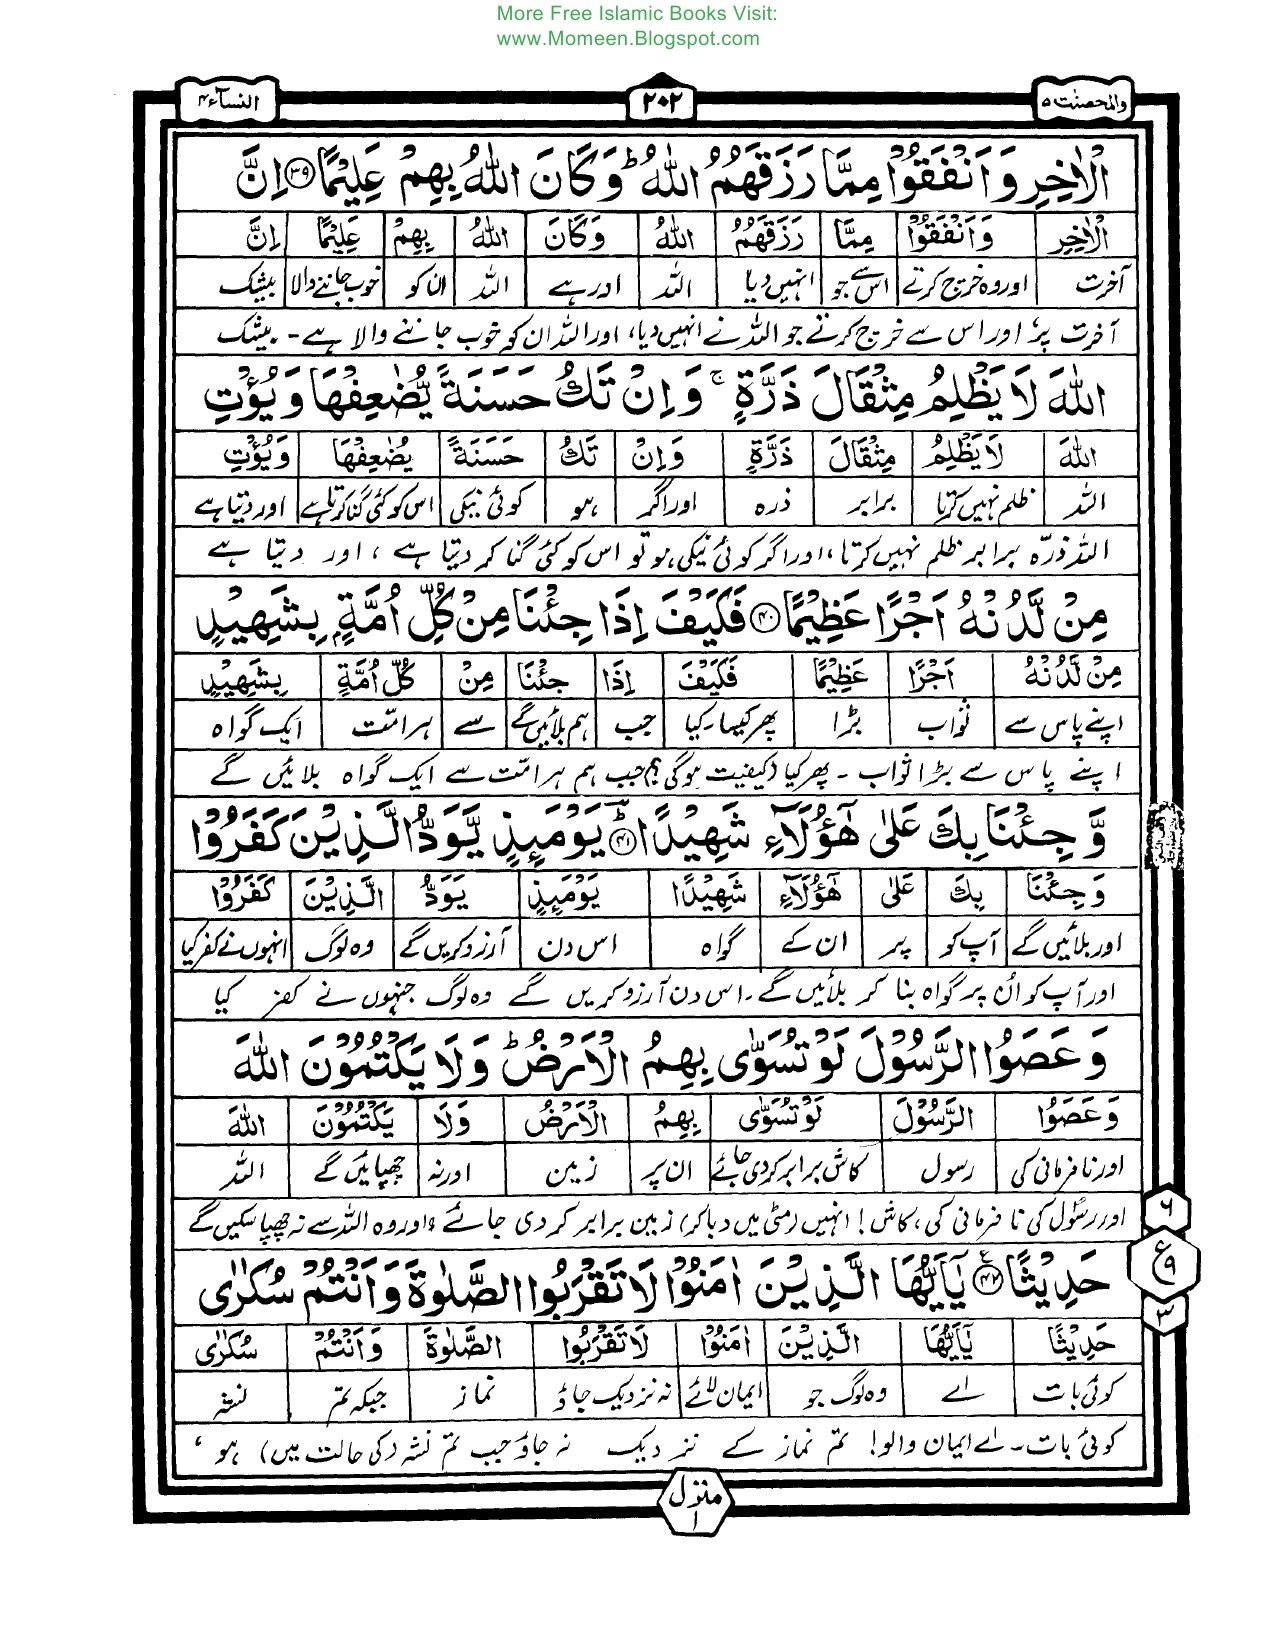 More Free Islamic Books Visit:
www.Momeen.Blogspot.com
والمحصنٰت ۵ ۲۰۲ النسآء ۴
الْاٰخِرِ وَاَنْفَقُوْا مِمَّا رَزَقَهُمُ اللّٰهُ ؕ وَكَانَ اللّٰهُ بِهِمْ عَلِيْمًا ﴿۳۹﴾ اِنَّ
الْاٰخِرِ وَاَنْفَقُوْا مِمَّا رَزَقَهُمُ اللّٰهُ وَكَانَ اللّٰهُ بِهِمْ عَلِيْمًا اِنَّ
آخرت اور وہ خرچ کرتے اس سے جو انہیں دیا اللہ اور ہے اللہ ان کو خوب جاننے والا بیشک
آخرت پر، اور اس سے خرچ کرتے جو اللہ نے انہیں دیا، اور اللہ ان کو خوب جاننے والا ہے۔ بیشک
اللّٰهَ لَا يَظْلِمُ مِثْقَالَ ذَرَّةٍ ۚ وَاِنْ تَكُ حَسَنَةً يُّضٰعِفْهَا وَيُؤْتِ
اللّٰهَ لَا يَظْلِمُ مِثْقَالَ ذَرَّةٍ وَاِنْ تَكُ حَسَنَةً يُضٰعِفْهَا وَيُؤْتِ
اللہ ظلم نہیں کرتا برابر ذرہ اور اگر ہو کوئی نیکی اس کو کئی گنا کرتا ہے اور دیتا ہے
اللہ ذرّہ برابر ظلم نہیں کرتا، اور اگر کوئی نیکی ہو تو اس کو کئی گنا کر دیتا ہے، اور دیتا ہے
مِنْ لَّدُنْهُ اَجْرًا عَظِيْمًا ﴿۴۰﴾ فَكَيْفَ اِذَا جِئْنَا مِنْ كُلِّ اُمَّةٍۭ بِشَهِيْدٍ
مِنْ لَدُنْهُ اَجْرًا عَظِيْمًا فَكَيْفَ اِذَا جِئْنَا مِنْ كُلِّ اُمَّةٍ بِشَهِيْدٍ
اپنے پاس سے ثواب بڑا پھر کیسا۔ کیا جب ہم بلائیں گے سے ہر امّت ایک گواہ
اپنے پاس سے بڑا ثواب ۔ پھر کیا (کیفیت ہو گی؟) جب ہم ہر امّت سے ایک گواہ بلائیں گے
وَّجِئْنَا بِكَ عَلٰى هٰٓؤُلَآءِ شَهِيْدًا ﴿۴۱﴾ؕ يَوْمَئِذٍ يَّوَدُّ الَّذِيْنَ كَفَرُوْا
وَجِئْنَا بِكَ عَلٰى هٰٓؤُلَآءِ شَهِيْدًا يَوْمَئِذٍ يَوَدُّ الَّذِيْنَ كَفَرُوْا
اور بلائیں گے آپ کو پر ان کے گواہ اس دن آرزو کریں گے وہ لوگ انہوں نے کفر کیا
اور آپ کو اُن پر گواہ بنا کر بلائیں گے۔ اس دن آرزو کریں گے وہ لوگ جنہوں نے کفر کیا
وَعَصَوُا الرَّسُوْلَ لَوْ تُسَوّٰى بِهِمُ الْاَرْضُ ؕ وَلَا يَكْتُمُوْنَ اللّٰهَ
وَعَصَوُا الرَّسُوْلَ لَوْ تُسَوّٰى بِهِمُ الْاَرْضُ وَلَا يَكْتُمُوْنَ اللّٰهَ
اور نافرمانی کی رسول کاش برابر کر دی جائے ان پر زمین اور نہ چھپائیں گے اللہ
اور رسُول کی نافرمانی کی، کاش! انہیں (مٹی میں دبا کر) زمین برابر کر دی جائے، اور وہ اللہ سے نہ چھپا سکیں گے
۶
ع ۹
۳
حَدِيْثًا ﴿۴۲﴾ يٰٓاَيُّهَا الَّذِيْنَ اٰمَنُوْا لَا تَقْرَبُوا الصَّلٰوةَ وَاَنْتُمْ سُكٰرٰى
حَدِيْثًا يٰٓاَيُّهَا الَّذِيْنَ اٰمَنُوْا لَا تَقْرَبُوا الصَّلٰوةَ وَاَنْتُمْ سُكٰرٰى
کوئی بات اے وہ لوگ جو ایمان لائے نہ نزدیک جاؤ نماز جبکہ تم نشہ
کوئی بات۔ اے ایمان والو! تم نماز کے نزدیک نہ جاؤ جب تم نشہ (کی حالت میں) ہو،
منزل ۱